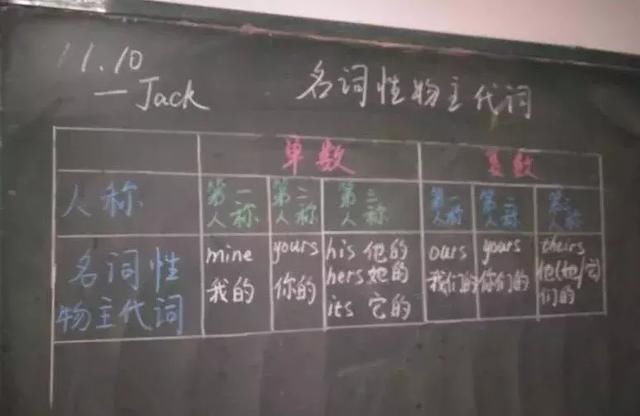 11.10
—Jack
名词性物主代词
单数 复数
人称 第一人称 第二人称 第三人称 第一人称 第二人称 第三人称
名词性物主代词
mine 我的
yours 你的
his 他的
hers 她的
its 它的
ours 我们的
yours 你们的
theirs 他(她/它)们的